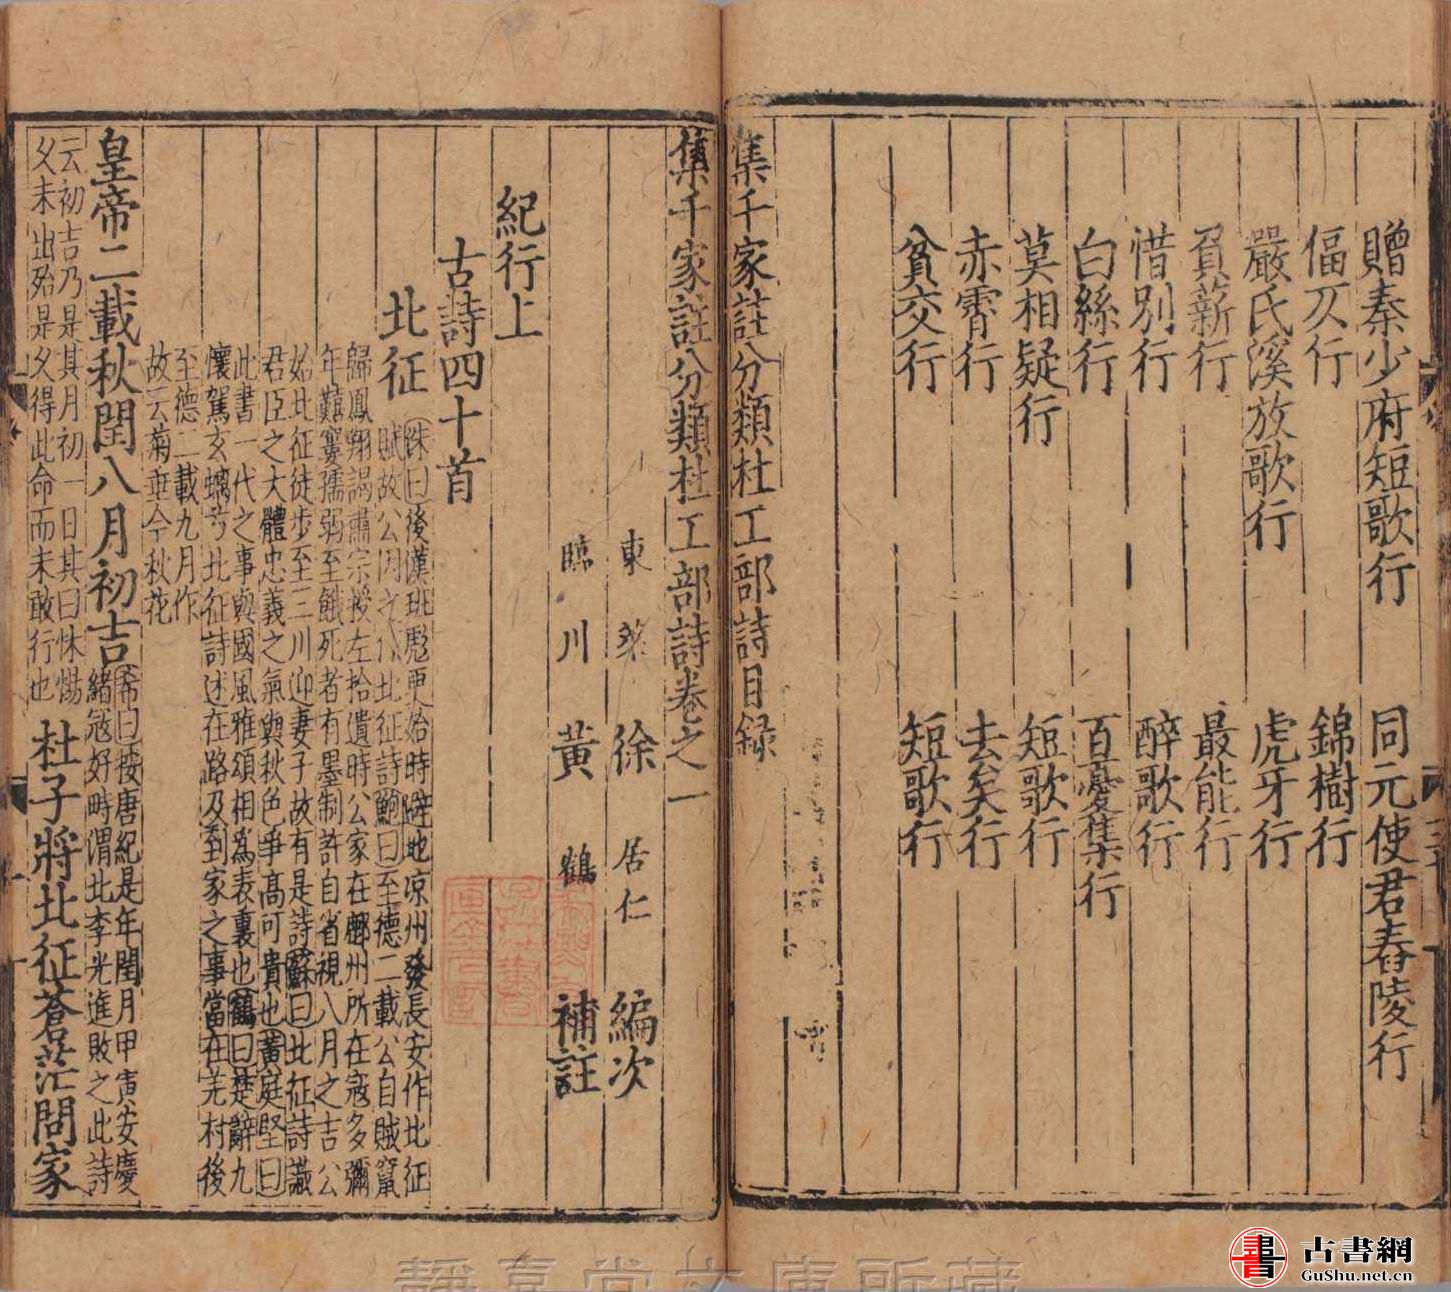 贈秦少府短歌行 同元使君舂陵行
偪仄行 錦樹行
嚴氏溪放歌行 虎牙行
負薪行 最能行
惜別行 醉歌行
白絲行 百憂集行
莫相疑行 短歌行
赤霄行 去矣行
貧交行 短歌行
集千家註分類杜工部詩目録
集千家註分類杜工部詩卷之一
東萊 徐居仁 編次
臨川 黃鶴 補註
紀行上
古詩四十首
北征
洙曰後漢班彪更始時避地凉州發長安作北征
賦故公因之作北征詩鮑曰至德二載公自賊竄
歸鳳翔謁肅宗授左拾遺時公家在鄜州所在寇多彌
年艱窶孺弱至餓死者有墨制許自省視八月之吉公
始北征徒步至三川迎妻子故有是詩蘇曰北征詩識
君臣之大體忠義之氣與秋色爭高可貴也黃庭堅曰
此書一代之事與國風雅頌相爲表裏也鶴曰楚辭九
懷駕玄螭兮北征詩述在路及到家之事當在羌村後
至德二載九月作
故云菊垂今秋花
皇帝二載秋閏八月初吉
希曰按唐紀是年閏月甲寅安慶
緒冦好畤渭北李光進敗之此詩
云初吉乃是其月初一日其曰怵惕
久未出殆是久得此命而未敢行也
杜子將北征蒼茫問家
古書網
GuShu.net.cn
靜嘉堂文庫所藏